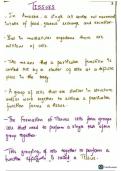 TISSUES
• In Amoeba, a single cell carries out movement
intake of food, gaseous exchange and excretion.
• But in multicellular organisms there are
millions of cells.
• This means that a particular function is
carried out by a cluster of cells at a definite
place in the body.
• A group of cells that are similar in structure
and/or work together to achieve a particular
function forms a tissue.
• The Formation of Tissues
cells that need to perform a
together.
• This grouping of cells together to perform a
function efficiently is called a Tissue.